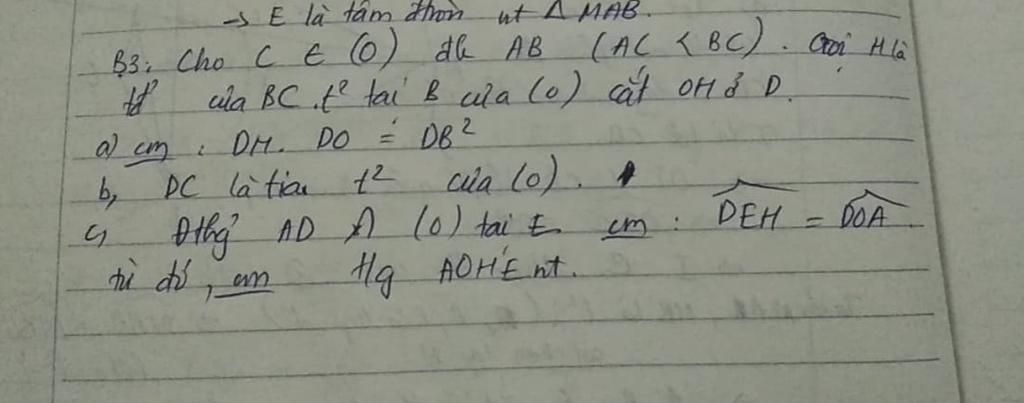 → E là tâm đtròn nt Δ MAB.
B3: Cho C ∈ (O) đk AB (AC < BC). Gọi H là
tđ của BC. t² tại B của (O) cắt OH ở D.
a) cm : DH. DO = DB²
b, DC là tiếp t² của (O).
c, Đthẳng AD ∩ (O) tại E cm : DEH = DOA
từ đó, cm tg AOHE nt.